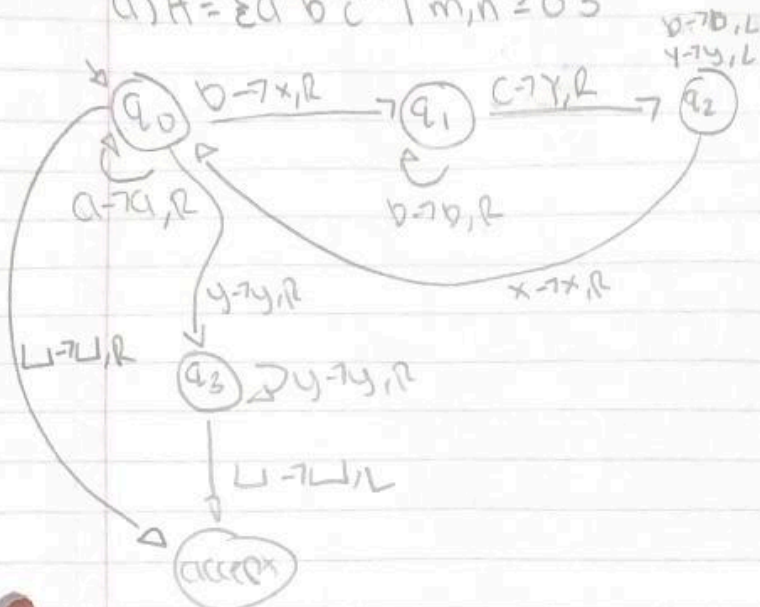 a) A = {a b c | m,n ≥ 0}
b→b, L
y→y, L
q0
b→x, R
q1
c→y, R
q2
a→a, R
b→b, R
x→x, R
y→y, R
⊔→⊔, R
q3
y→y, R
⊔→⊔, L
accept